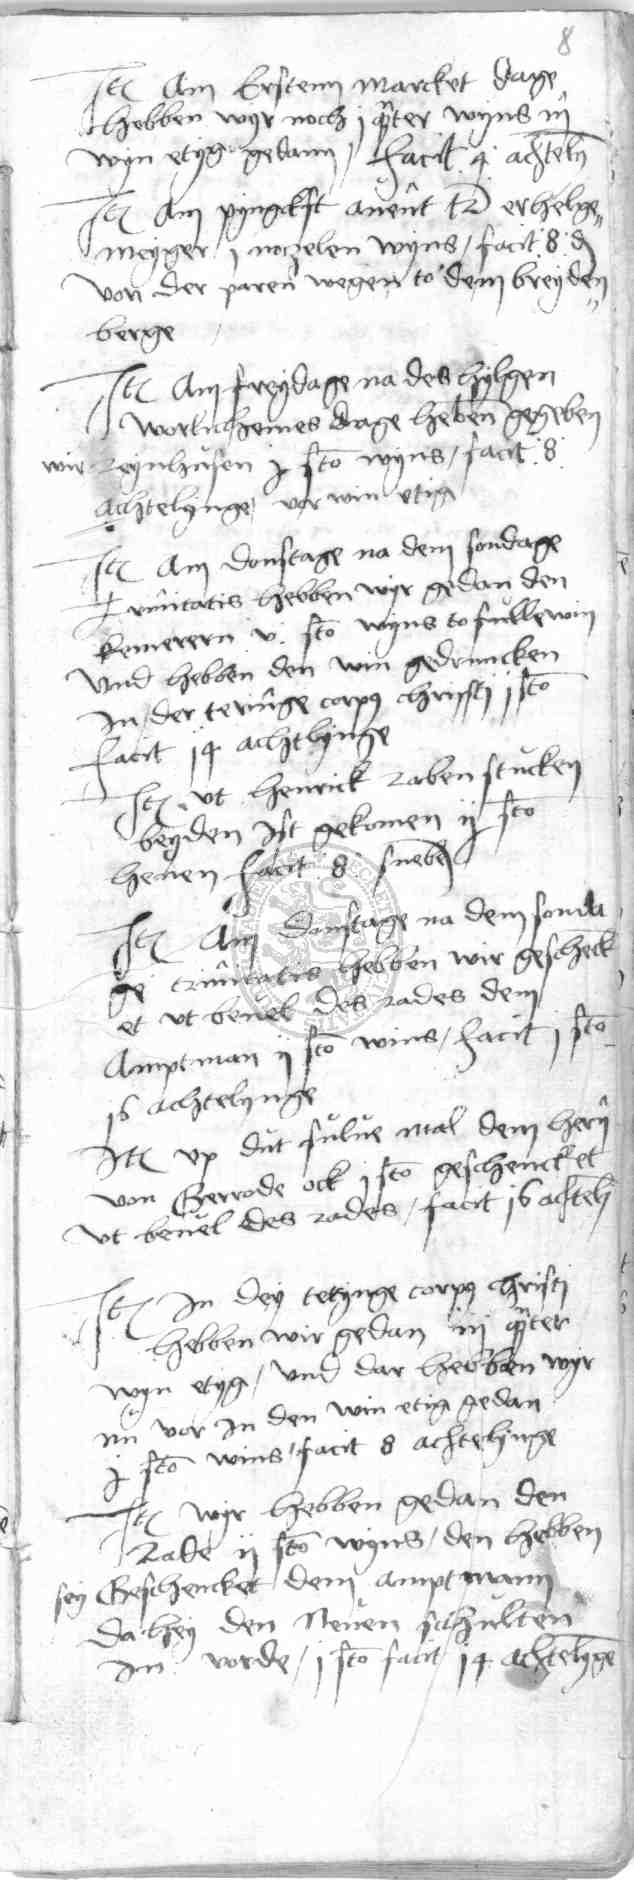 8
Itē Am Ersten marcket dage
hebben wyr noch j qrter wyns in
wyn etyg gedann / facit 4 achtelī
Itē Am pyngkst auent
meyger j noczelen wyns / facit 8 d
von der paren wegen to dem breyden
berge
Itē Am freydage na des hylgen
worlichemes dage hebben gegeben
wir reynhusen j sto wyns / facit 8
achtelynge vor win etig
Itē Am donstage na dem sondage
Trinitatis hebben wyr gedan den
kemerern v sto wyns to fullewin
Und hebben den win gedruncken
In der teringe corpus christi j sto
facit 14 achtlynge
Itē ut henrick raben stucken
beyden Ist gekomen ij sto
heuen facit 8
Itē Am donstage na dem sonda
ge trinitatis hebben wir geschenck
et ut beuel des rades dem
Amptman ij sto wins / facit j sto
16 achtelynge
Itē up dut sulue mal dem hern
von Gerrode ock j sto geschencket
ut beuel des rades / facit 16 achtelī
Itē In dey terynge corpus christi
hebben wir gedan iij qrter
wyn etyg / und dar hebben wyr
nu vor In den win etig gedan
j sto wins / facit 8 achtelinge
Itē wyr hebben gedan den
Rade ij sto wyns / den hebben
sey Geschencket dem amptmann
da hey den Neuen schulten
Im vorde / j sto facit 14 achtelyge